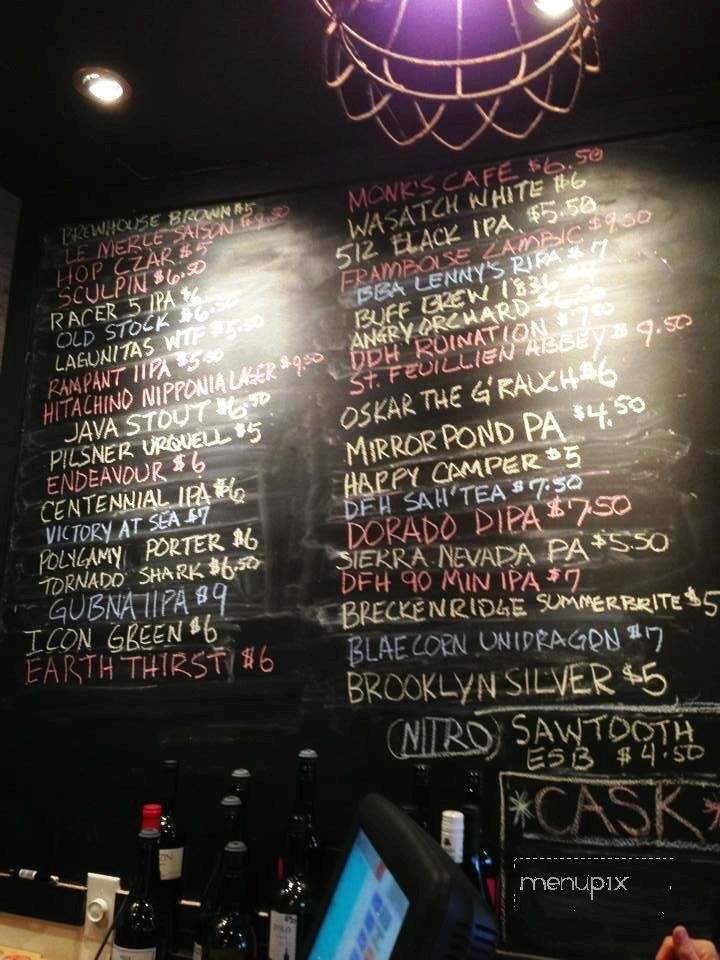 BREWHOUSE BROWN $5
LE MERLE SAISON $9.50
HOP CZAR $5
SCULPIN $6.50
RACER 5 IPA $6
OLD STOCK $6.50
LAGUNITAS WTF $5.50
RAMPANT IIPA $5.50
HITACHINO NIPPONIA LAGER $9.50
JAVA STOUT $6.50
PILSNER URQUELL $5
ENDEAVOUR $6
CENTENNIAL IPA $6
VICTORY AT SEA $7
POLYGAMY PORTER $6
TORNADO SHARK $6.50
GUBNA IIPA $9
ICON GREEN $6
EARTH THIRST $6
MONK'S CAFE $6.50
WASATCH WHITE $6
512 BLACK IPA $5.50
FRAMBOISE LAMBIC $9.50
BBA LENNY'S RIPA $7
BUFF BREW 1836
ANGRY ORCHARD
DDH RUINATION
ST. FEUILLIEN ABBEY $9.50
OSKAR THE G'RAUCH $6
MIRROR POND PA $4.50
HAPPY CAMPER $5
DFH SAH'TEA $7.50
DORADO DIPA $7.50
SIERRA NEVADA PA $5.50
DFH 90 MIN IPA $7
BRECKENRIDGE SUMMERBRITE $5
BLAECORN UNIDRAGON $7
BROOKLYN SILVER $5
NITRO SAWTOOTH
ESB $4.50
CASK
menupix